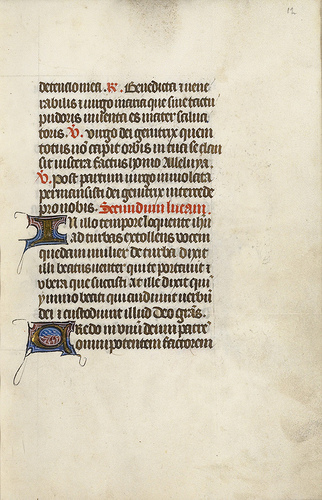 12
detencio mea. R. Benedicta et vene
rabilis es virgo maria que sine tactu
pudoris inventa es mater salva
toris. V. Virgo dei genitrix quem
totus nō capit orbis in tua se clau
sit viscera factus homo Alleluya.
V. Post partum virgo inviolata
permansisti dei genitrix intercede
pro nobis. Secundum lucam.
In illo tempore loquente ihū
ad turbas extollens vocem
quedam mulier de turba dixit
illi beatus venter qui te portavit et
ubera que suxisti at ille dixit qui
ymmo beati qui audiunt verbū
dei et custodiunt illud Deo grās.
Credo in unū deum patrē
omnipotentem factorem